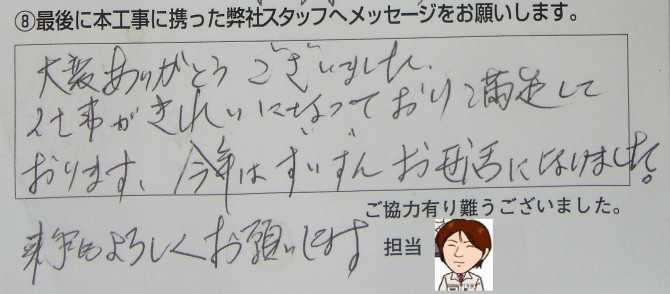 ⑧最後に本工事に携った弊社スタッフへメッセージをお願いします。
大変ありがとうございました、
仕事がきれいになっており満足して
おります、今年はずいずんお世話になりました。
来年もよろしくお願いします
ご協力有り難うございました。
担当